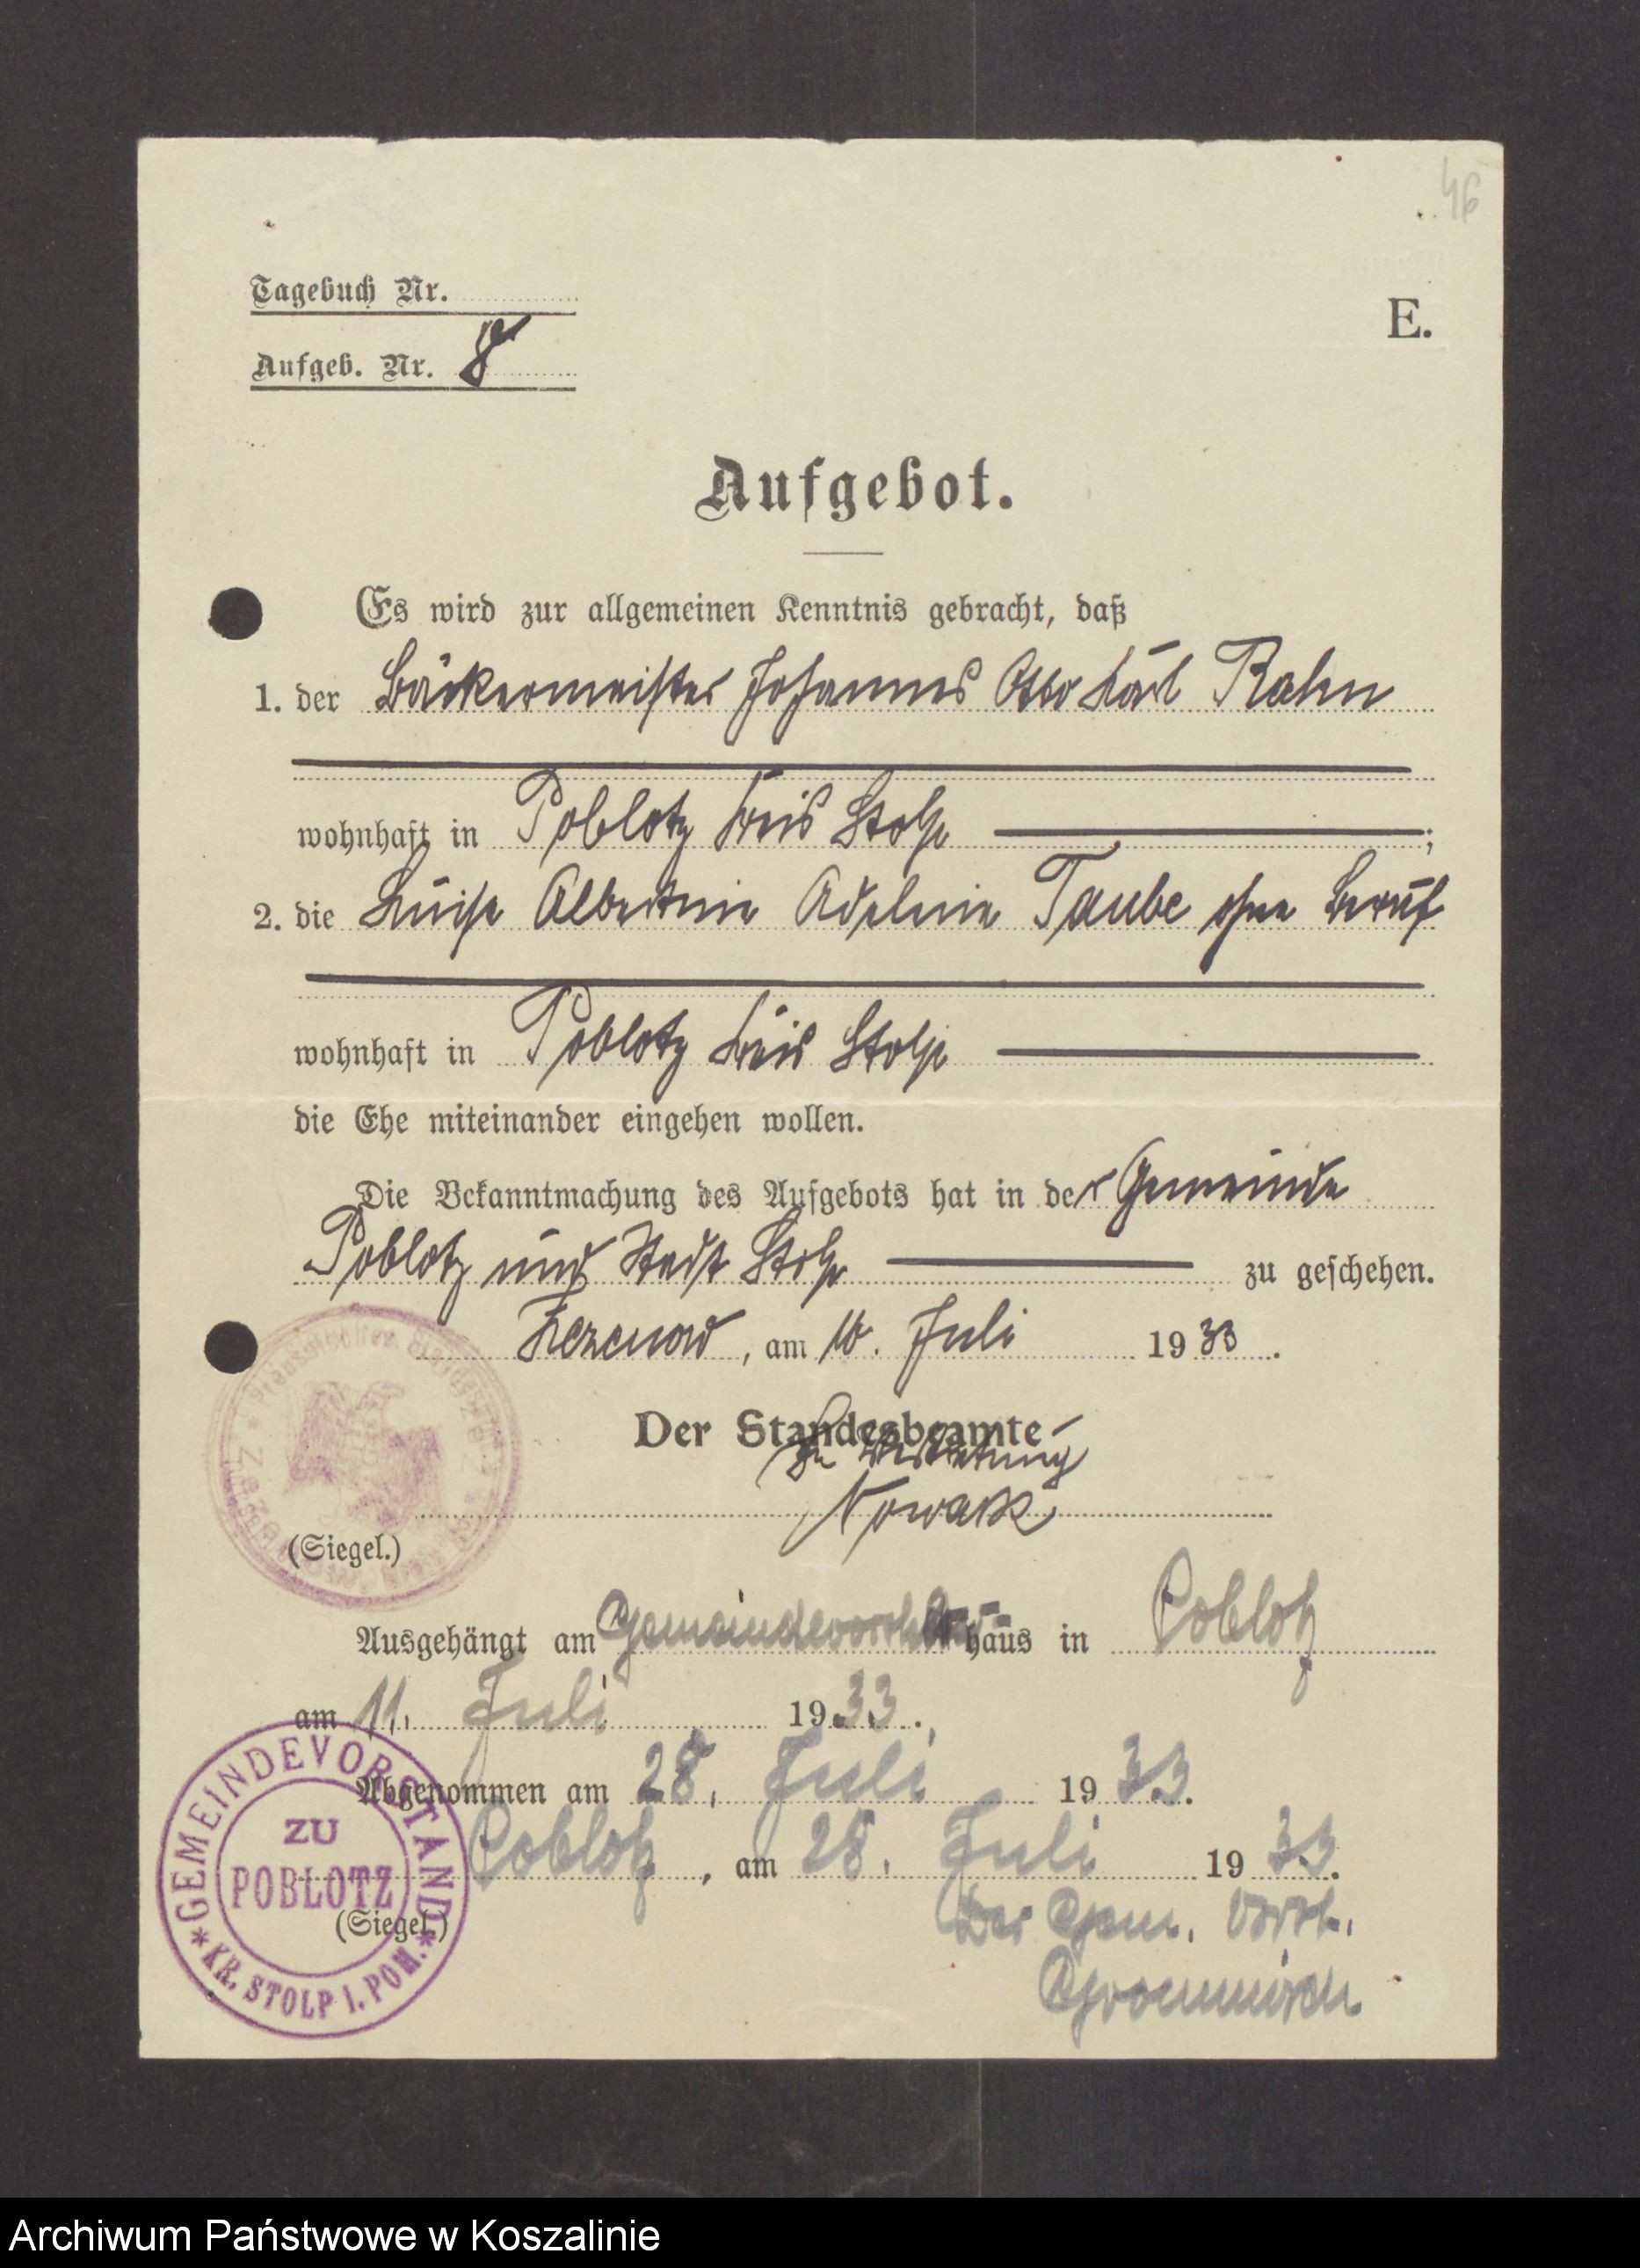 46
Tagebuch Nr.
E.
Aufgeb. Nr. 8
Aufgebot.
Es wird zur allgemeinen Kenntnis gebracht, daß
1. der Bäckermeister Johannes Otto Karl Rahn
wohnhaft in Poblotz Kreis Stolp ;
2. die Luise Albertine Adeline Taube ohne Beruf
wohnhaft in Poblotz Kreis Stolp
die Ehe miteinander eingehen wollen.
Die Bekanntmachung des Aufgebots hat in der Gemeinde
Poblotz und Stadt Stolp zu geschehen.
Zezenow, am 10. Juli 1933.
Der Standesbeamte
In Vertretung
Nowack
(Siegel.)
Ausgehängt am haus in Poblotz
am 11. Juli 1933.,
Abgenommen am 28. Juli 1933.
Poblotz, am 28. Juli 1933.
(Siegel.)
Der Gem. Vorst.
GEMEINDEVORSTAND
ZU
POBLOTZ
*KR. STOLP I. POM.*
Archiwum Państwowe w Koszalinie